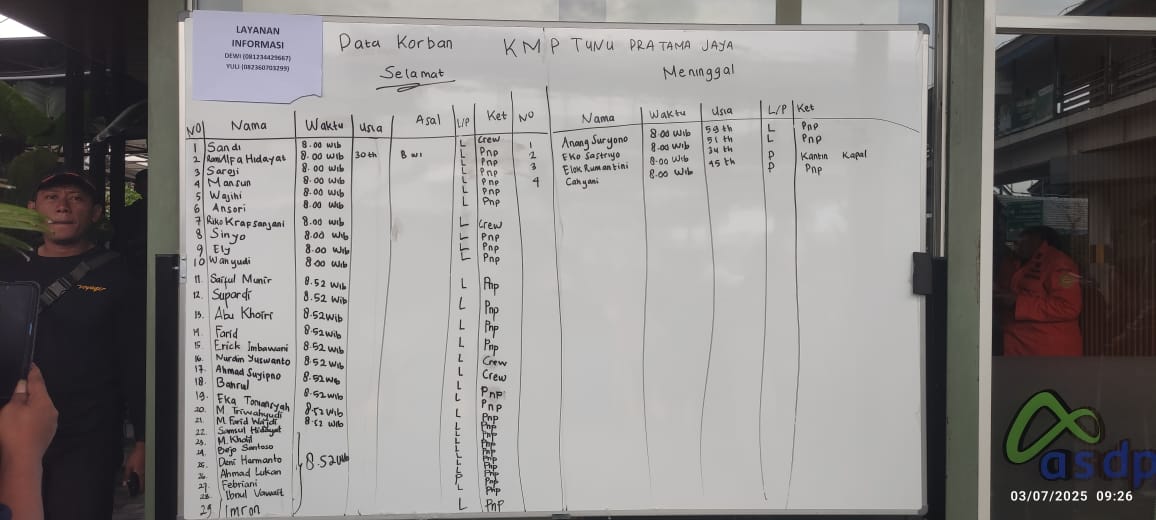 LAYANAN
INFORMASI
DEWI (081234429667)
YULI (082360703299)
Data Korban KMP TUNU PRATAMA JAYA
Selamat
Meninggal
NO Nama Waktu Usia Asal L/P Ket
1 Sandi 8.00 Wib L Crew
2 Alfa Hidayat 8.00 Wib 30 th Bwi L Pnp
3 Saroji 8.00 Wib L Pnp
4 Mansun 8.00 Wib L Pnp
5 Wajihi 8.00 Wib L Pnp
6 Ansori 8.00 Wib L Pnp
7 Riko Krapsanjani 8.00 Wib L Crew
8 Sinyo 8.00 Wib L Pnp
9 Ely 8.00 Wib L Pnp
10 Wahyudi 8.00 Wib
11. Saiful Munir 8.52 Wib L Pnp
12. Supardi 8.52 Wib L Pnp
13. Abu Khoiri 8.52 Wib L Pnp
14. Farid 8.52 Wib L Pnp
15. Erick Imbawani 8.52 Wib L Crew
16. Nurdin Yuswanto 8.52 Wib L Crew
17. Ahmad Suyipno 8.52 Wib L Pnp
18. Bahrul 8.52 Wib L Pnp
19. Eka 8.52 Wib L Pnp
20. M Triwahyudi 8.52 Wib L Pnp
21. M. Farid Wajdi L Pnp
22. Samsul Hidayat L Pnp
23. M. Kholil L Pnp
24. Bejo Santoso L Pnp
25. Deni Harmanto 8.52 Wib L Pnp
26. Ahmad Lukan L Pnp
27. Febriani P Pnp
28. Ibnul Vawait L Pnp
29 Imron L Pnp
NO Nama Waktu Usia L/P Ket
1 Anang Suryono 8.00 Wib 59 th L Pnp
2 Eko Sastriyo 8.00 Wib 51 th L Pnp
3 Elok Rumantini 8.00 Wib 34 th P Kantin Kapal
4 Cahyani 8.00 Wib 45 th P Pnp
asdp
03/07/2025 09:26